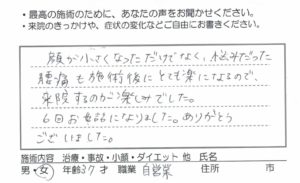 ・最高の施術のために、あなたの声をお聞かせください。
・来院のきっかけや、症状の変化などご自由にお書きください。
顔が小さくなっただけでなく、悩みだった
腰痛も施術後にとても楽になるので、
来院するのが楽しみでした。
6回お世話になりました。ありがとう
ございました。
施術内容 治療・事故・小顔・ダイエット 他 氏名
男・女 年齢37才 職業 自営業 住所 市